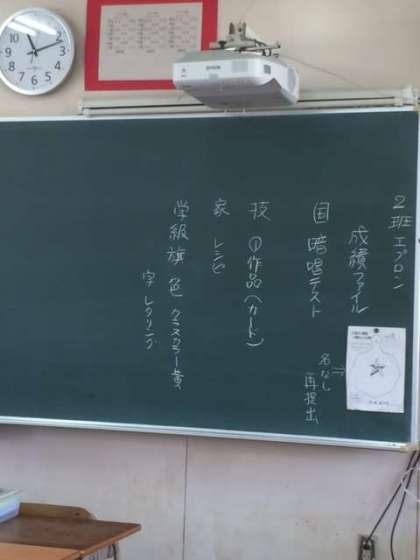 2班 エプロン
成績ファイル
名なし
再提出
国 暗唱テスト
技 ①作品(カード)
家 レシピ
学級旗 色 クラスカラー黄
字 レタリング
EPSON